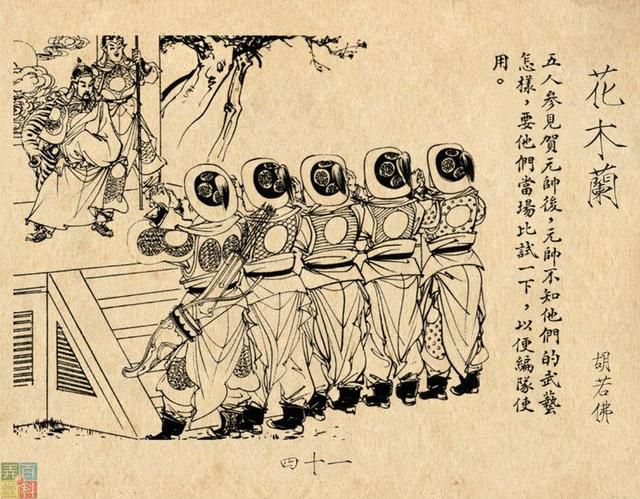 花木蘭
胡若佛
五人參見賀元帥後，元帥不知他們的武藝
怎樣，要他們當場比試一下，以便編隊使
用。
四十一
百科
弄堂